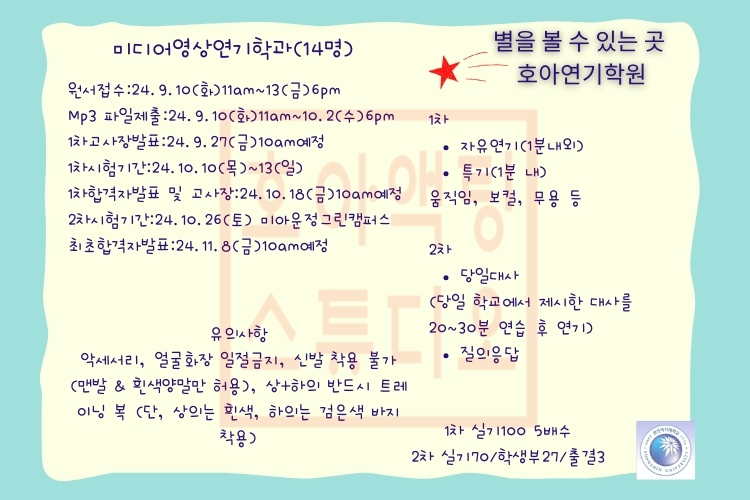 미디어영상연기학과(14명)
별을 볼 수 있는 곳
호아연기학원
원서접수:24.9.10(화)11am~13(금)6pm
Mp3 파일제출:24.9.10(화)11am~10.2(수)6pm
1차고사장발표:24.9.27(금)10am예정
1차시험기간:24.10.10(목)~13(일)
1차합격자발표 및 고사장:24.10.18(금)10am예정
2차시험기간:24.10.26(토) 미아운정그린캠퍼스
최초합격자발표:24.11.8(금)10am예정
유의사항
악세서리, 얼굴화장 일절금지, 신발 착용 불가
(맨발 & 흰색양말만 허용), 상+하의 반드시 트레
이닝 복 (단, 상의는 흰색, 하의는 검은색 바지
착용)
1차
• 자유연기(1분내외)
• 특기(1분 내)
움직임, 보컬, 무용 등
2차
• 당일대사
(당일 학교에서 제시한 대사를
20~30분 연습 후 연기)
• 질의응답
1차 실기100 5배수
2차 실기70/학생부27/출결3
호아액팅
스튜디오